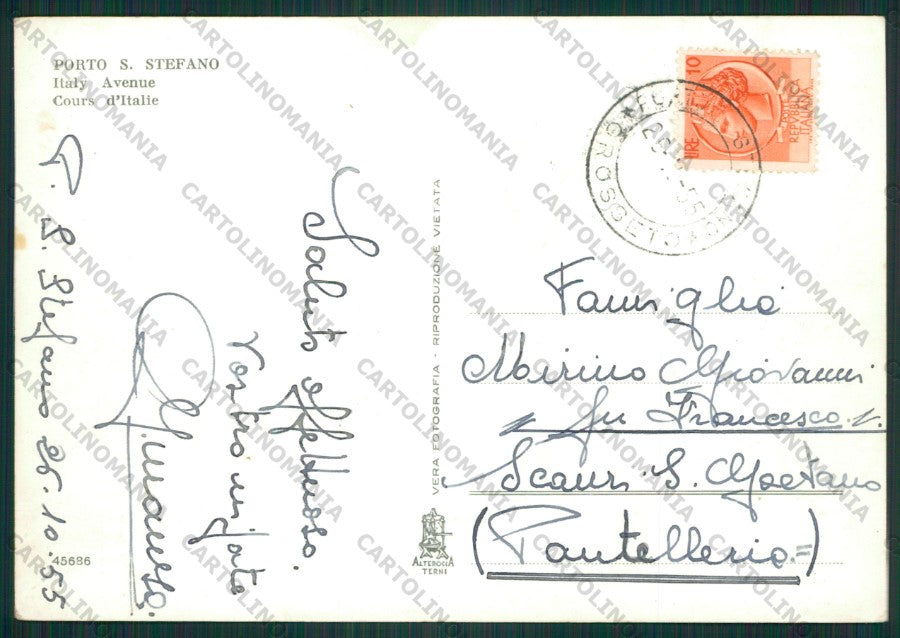 PORTO S. STEFANO
Italy Avenue
Cours d'Italie
P. S. Stefano 26.10.55
Saluto affettuoso.
Vostro nipote
45686
VERA FOTOGRAFIA - RIPRODUZIONE VIETATA
ALTEROCCA
TERNI
LIRE 10
REPVBBLICA
ITALIANA
GROSSETO
Famiglia
Mirino Giovanni
fu Francesco
Scauri S. Gaetano
(Pantelleria)
CARTOLINOMANIA